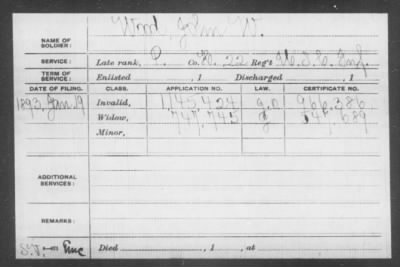 NAME OF SOLDIER: Wood, John W.
SERVICE: Late rank, P. Co. 22 Reg't U.S.C. Inf.
TERM OF SERVICE: Enlisted , 1 Discharged , 1
DATE OF FILING. CLASS. APPLICATION NO. LAW. CERTIFICATE NO.
1893, Jan. 19 Invalid, 1,145,424 966,386
Widow, 747,745 689
Minor,
ADDITIONAL SERVICES:
REMARKS:
Died , 1 , at